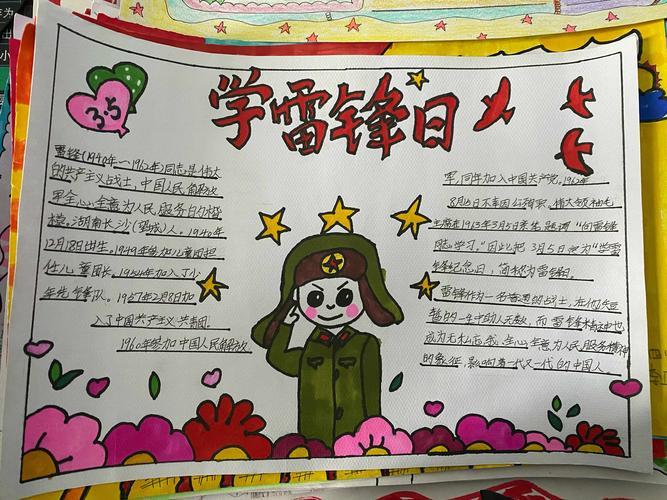 学雷锋日
3.5
雷锋(1940年—1962年)同志是伟大
的共产主义战士,中国人民解放
军全心全意为人民服务的楷
模。湖南长沙(望城)人。1940年
12月18日出生。1949年参加儿童团担
任儿童团长。1954年加入了少
年先锋队。1957年2月8日加
入了中国共产主义共青团。
1960年参加中国人民解放
军,同年加入中国共产党。1962年
8月15日不幸因公殉职,伟大领袖毛
主席在1913年3月5日亲笔题词“向雷锋
同志学习。”因此把3月5日定为“学雷
锋纪念日,简称为雷锋日。
雷锋作为一名普通的战士,在他
的一生中助人无数,而雷锋精神也
成为无私忘我、全心全意为人民服务精神
的象征,影响着一代又一代的中国人